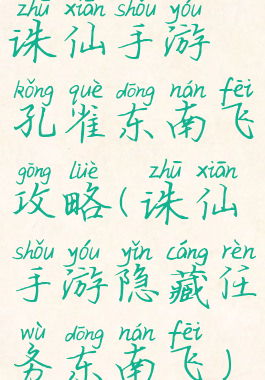 zhū xiān shǒu yóu
诛仙手游
kǒng què dōng nán fēi
孔雀东南飞
gōng lüè zhū xiān
攻略(诛仙
shǒu yóu yǐn cáng rèn
手游隐藏任
wù dōng nán fēi
务东南飞)